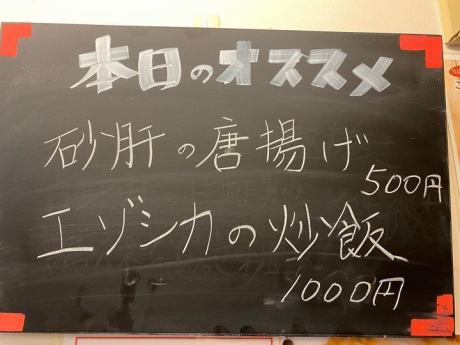 本日のオススメ
砂肝の唐揚げ
500円
エゾシカの炒飯
1000円